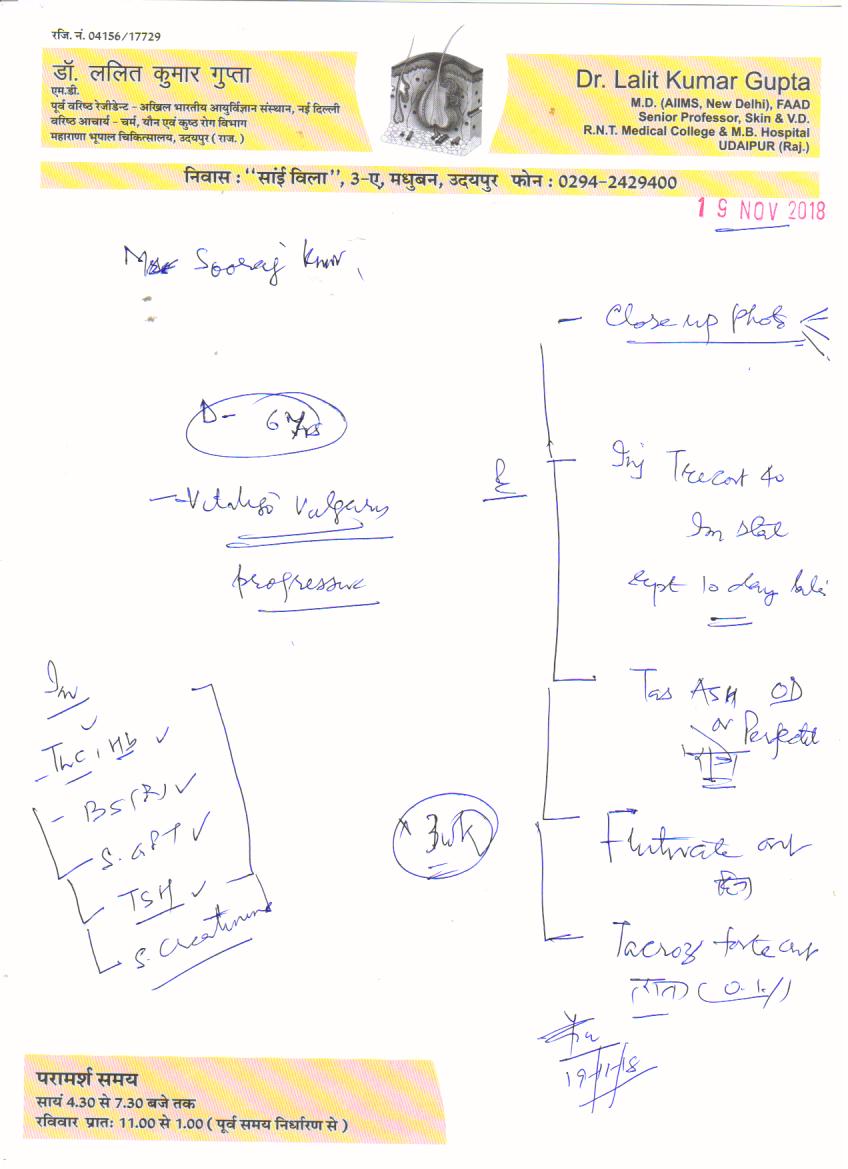 रजि. नं. 04156/17729
डॉ. ललित कुमार गुप्ता
एम.डी.
पूर्व वरिष्ठ रेजीडेन्ट - अखिल भारतीय आयुर्विज्ञान संस्थान, नई दिल्ली
वरिष्ठ आचार्य - चर्म, यौन एवं कुष्ठ रोग विभाग
महाराणा भूपाल चिकित्सालय, उदयपुर ( राज. )
Dr. Lalit Kumar Gupta
M.D. (AIIMS, New Delhi), FAAD
Senior Professor, Skin & V.D.
R.N.T. Medical College & M.B. Hospital
UDAIPUR (Raj.)
निवास : "सांई विला", 3-ए, मधुबन, उदयपुर फोन : 0294-2429400
19 NOV 2018
Sooraj
- Close up Photo
D- 6 Yrs
- Vitiligo Vulgaris
progressive
Inj Tricort 40
Im stat
rept 10 day later
Inv
- TLC, Hb
- BS (R)
- S. GPT
- TSH
- S. Creatinine
x 3 wk
Tab ASH OD
or Perfect
Flutivate ont
दिन
Tacroz forte ont
रात (0.1%)
19/11/18
परामर्श समय
सायं 4.30 से 7.30 बजे तक
रविवार प्रातः 11.00 से 1.00 ( पूर्व समय निर्धारण से )